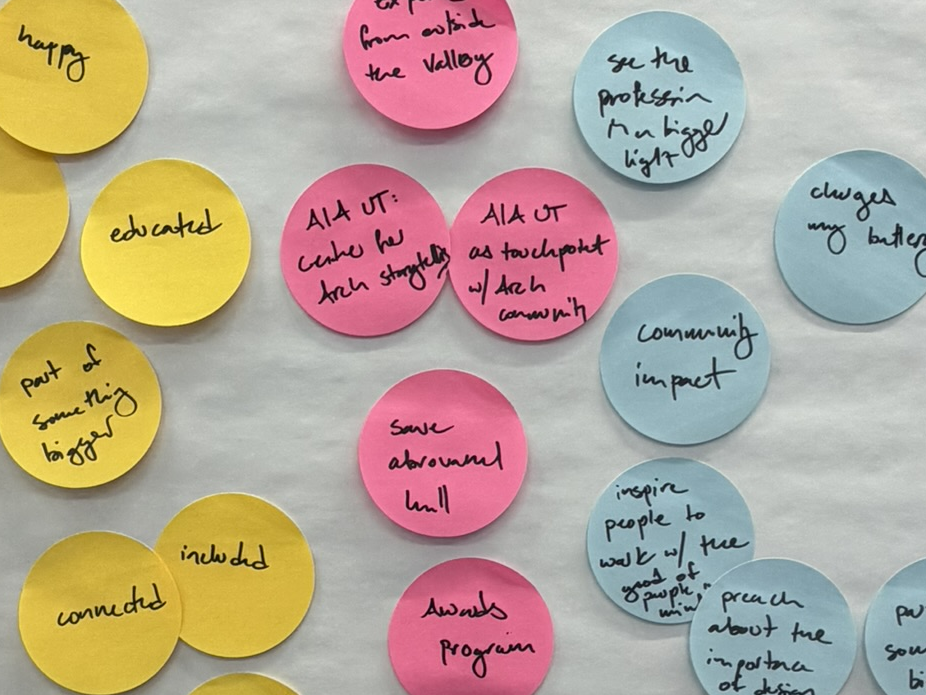 happy
from outside
the valley
see the
profession
in a bigger
light
educated
AIA UT:
center for
Arch storytelling
AIA UT
as touchpoint
w/ Arch
community
charges
my battery
part of
something
bigger
community
impact
save
abravanel
hall
inspire
people to
work w/ the
good of
people
included
connected
Awards
program
preach
about the
importance
of design